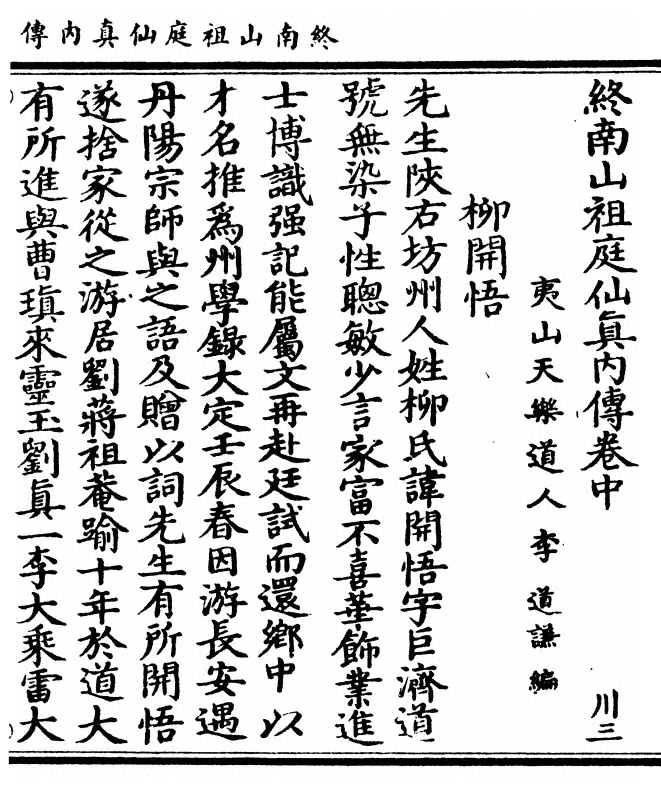 終南山祖庭仙真内傳
終南山祖庭仙眞内傳卷中
川三
夷山天樂道人李道謙編
柳開悟
先生陝右坊州人姓柳氏諱開悟字巨濟道
號無染子性聰敏少言家富不喜華飾業進
士博識强記能屬文再赴廷試而還鄉中以
才名推爲州學錄大定壬辰春因游長安遇
丹陽宗師與之語及贈以詞先生有所開悟
遂捨家從之游居劉蔣祖菴踰十年於道大
有所進與曹瑱來靈玉劉眞一李大乘雷大